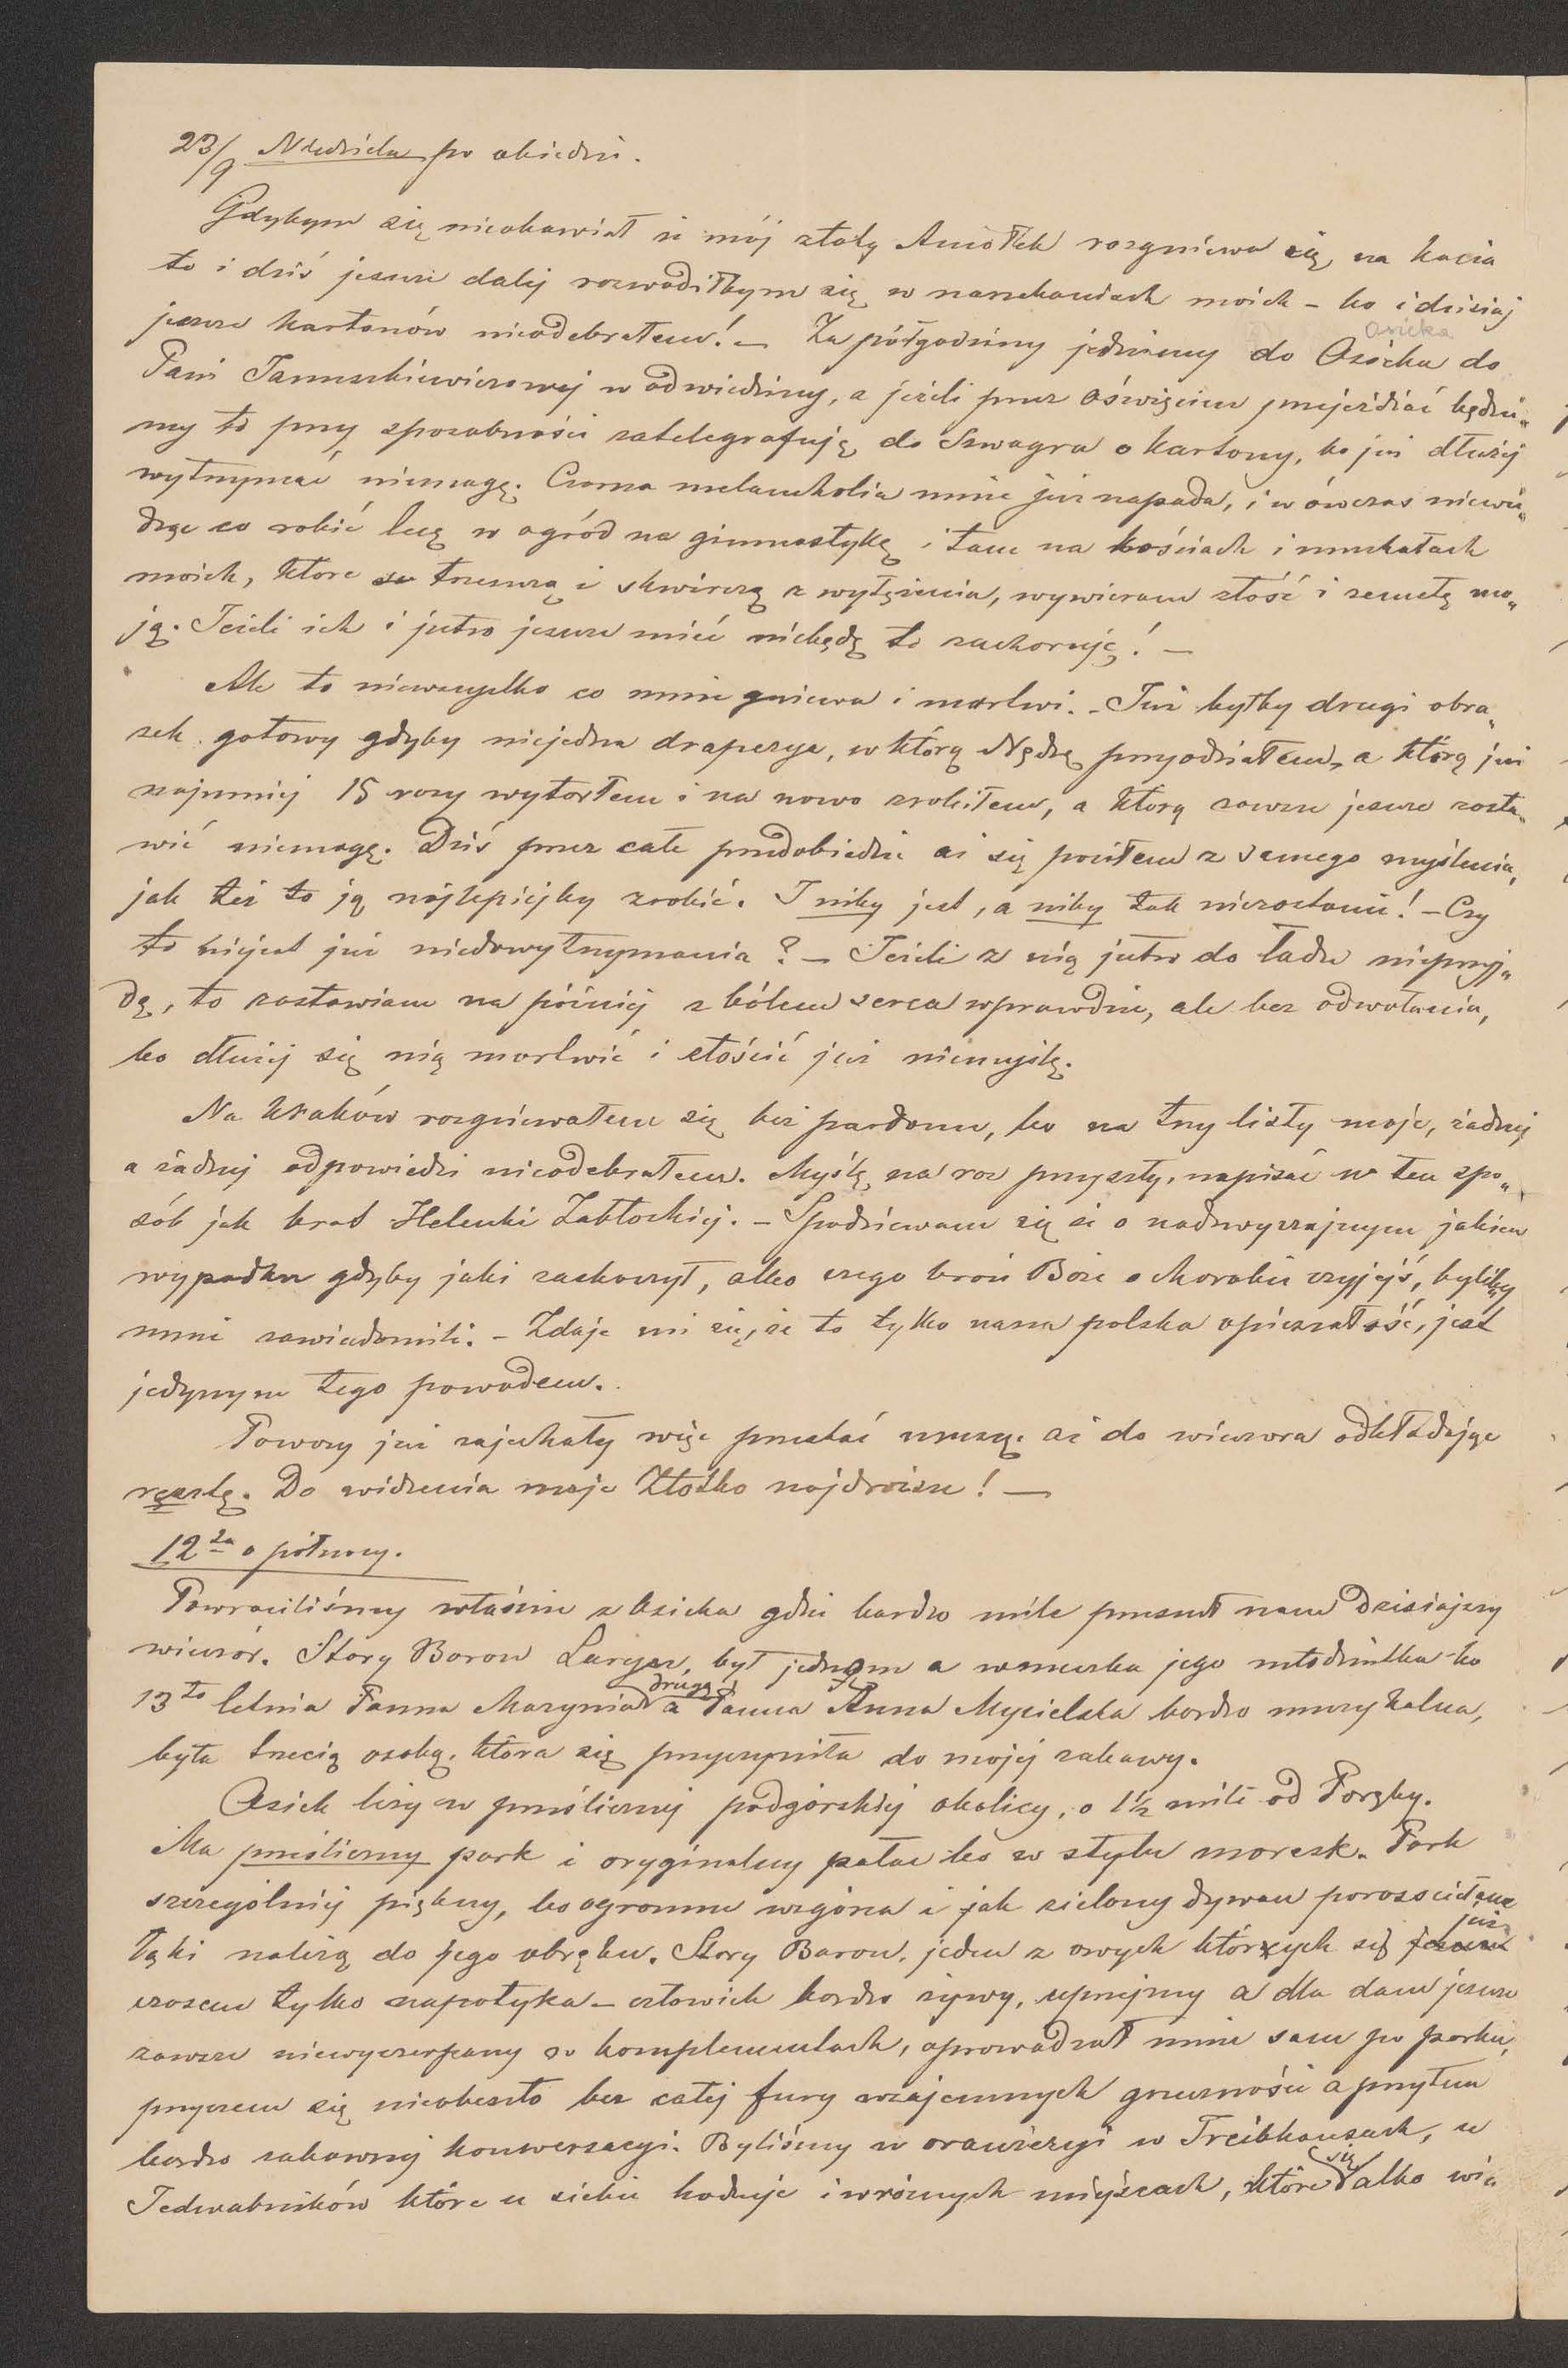 23/9 Niedziela po obiedzi.
Gdybym się nieobawiał że mój złoty Aniołek rozgniewa się na Kacia
to i dziś jeszcze dalej rozwodziłbym się w narzekaniach moich – bo i dzisiaj
jeszcze kartonów nieodebrałem! – Za półgodziny jedziemy do Osiecka do
Osieka
Pani Januszkiewiczowej w odwiedziny, a jeżeli przez Oświęcim przejeżdżać będzie„
my to przy sposobności zatelegrafuję do Szwagra o kartony, bo już dłużéj
wytrzymać niemogę. Czarna melancholia mnie już napada, i wówczas niewie„
dząc co robić lecę w ogród na gimnastykę i tam na kościach i muskułach
moich, które trzeszczą i skwirczą z wytężenia, wywieram złość i zemstę mo„
ją. Jeżeli ich i jutro jeszcze mieć niebędę to zachoruję! –
Ale to niewszystko co mnie gniewa i martwi. – Już byłby drugi obra„
zek gotowy gdyby niejedna draperya, w którą Nędzę przyodziałem, a którą już
najmniej 15 razy wytarłem i na nowo zrobiłem, a którą zawsze jeszcze zosta„
wić niemogę. Dziś przez całe przedobiedzie aż się pociłem z samego myślenia,
jak też to ją najlepiejby zrobić. I niby jest, a niby tak niezostanie! – Czy
to niejest już niedowytrzymania? – Jeżeli z nią jutro do ładu nieprzyj„
dę, to zostawiam na później z bólem serca wprawdzie, ale bez odwołania,
bo dłużej się nią martwić i złościć już niemyślę.
Na Kraków rozgniewałem się bez pardonu, bo na trzy listy moje, żadnej
a żadnej odpowiedzi nieodebrałem. Myślę, na raz przyszły, napisać w ten spo„
sób jak brat Helenki Zabłockiej. – Spodziewam się że o nadzwyczajnym jakim
wypadku gdyby jaki zaskoczył, albo czego broń Boże o chorobie czyjejś, byliby
mnie zawiadomili. – Zdaje mi się, że to tylko nasza polska opieszałość, jest
jedynym tego powodem.
Powozy już zajechały więc przestać muszę aż do wieczora odkładając
resztę. Do widzenia moje Złotko najdroższe! –
12ta o północy.
Powróciliśmy właśnie z Osieka gdzie bardzo mile przeszedł nam dzisiajszy
wieczór. Stary Baron Larysz, był jedną a wnuczka jego młodziutka bo
13to letnia Panna Marynia drugą a Panna Anna Mycielska bardzo muzykalna,
była trzecią osobą, która się przyczyniła do mojéj zabawy.
Osiek leży w prześlicznej podgórskiej okolicy, o 1½ mili od Poręby.
Ma prześliczny park i oryginalny pałac bo w stylu moresk. Park
szczególniej piękny, bo ogromne wzgórza i jak zielony dywan porozścielane
łąki należą do jego obrębu. Stary Baron, jeden z owych których się już
czasem tylko napotyka – człowiek bardzo żywy, uprzejmy a dla dam jeszcze
zawsze niewyczerpany w komplementach, oprowadzał mnie sam po parku,
przyczem się nieobeszło bez całej fury wzajemnych grzeczności a przytem
bardzo zabawnej konwersacyi. Byliśmy w oranżeryi w Treibhauzach, u
Jedwabników które u siebie hoduje i wróżnych miejscach, które się albo wi„